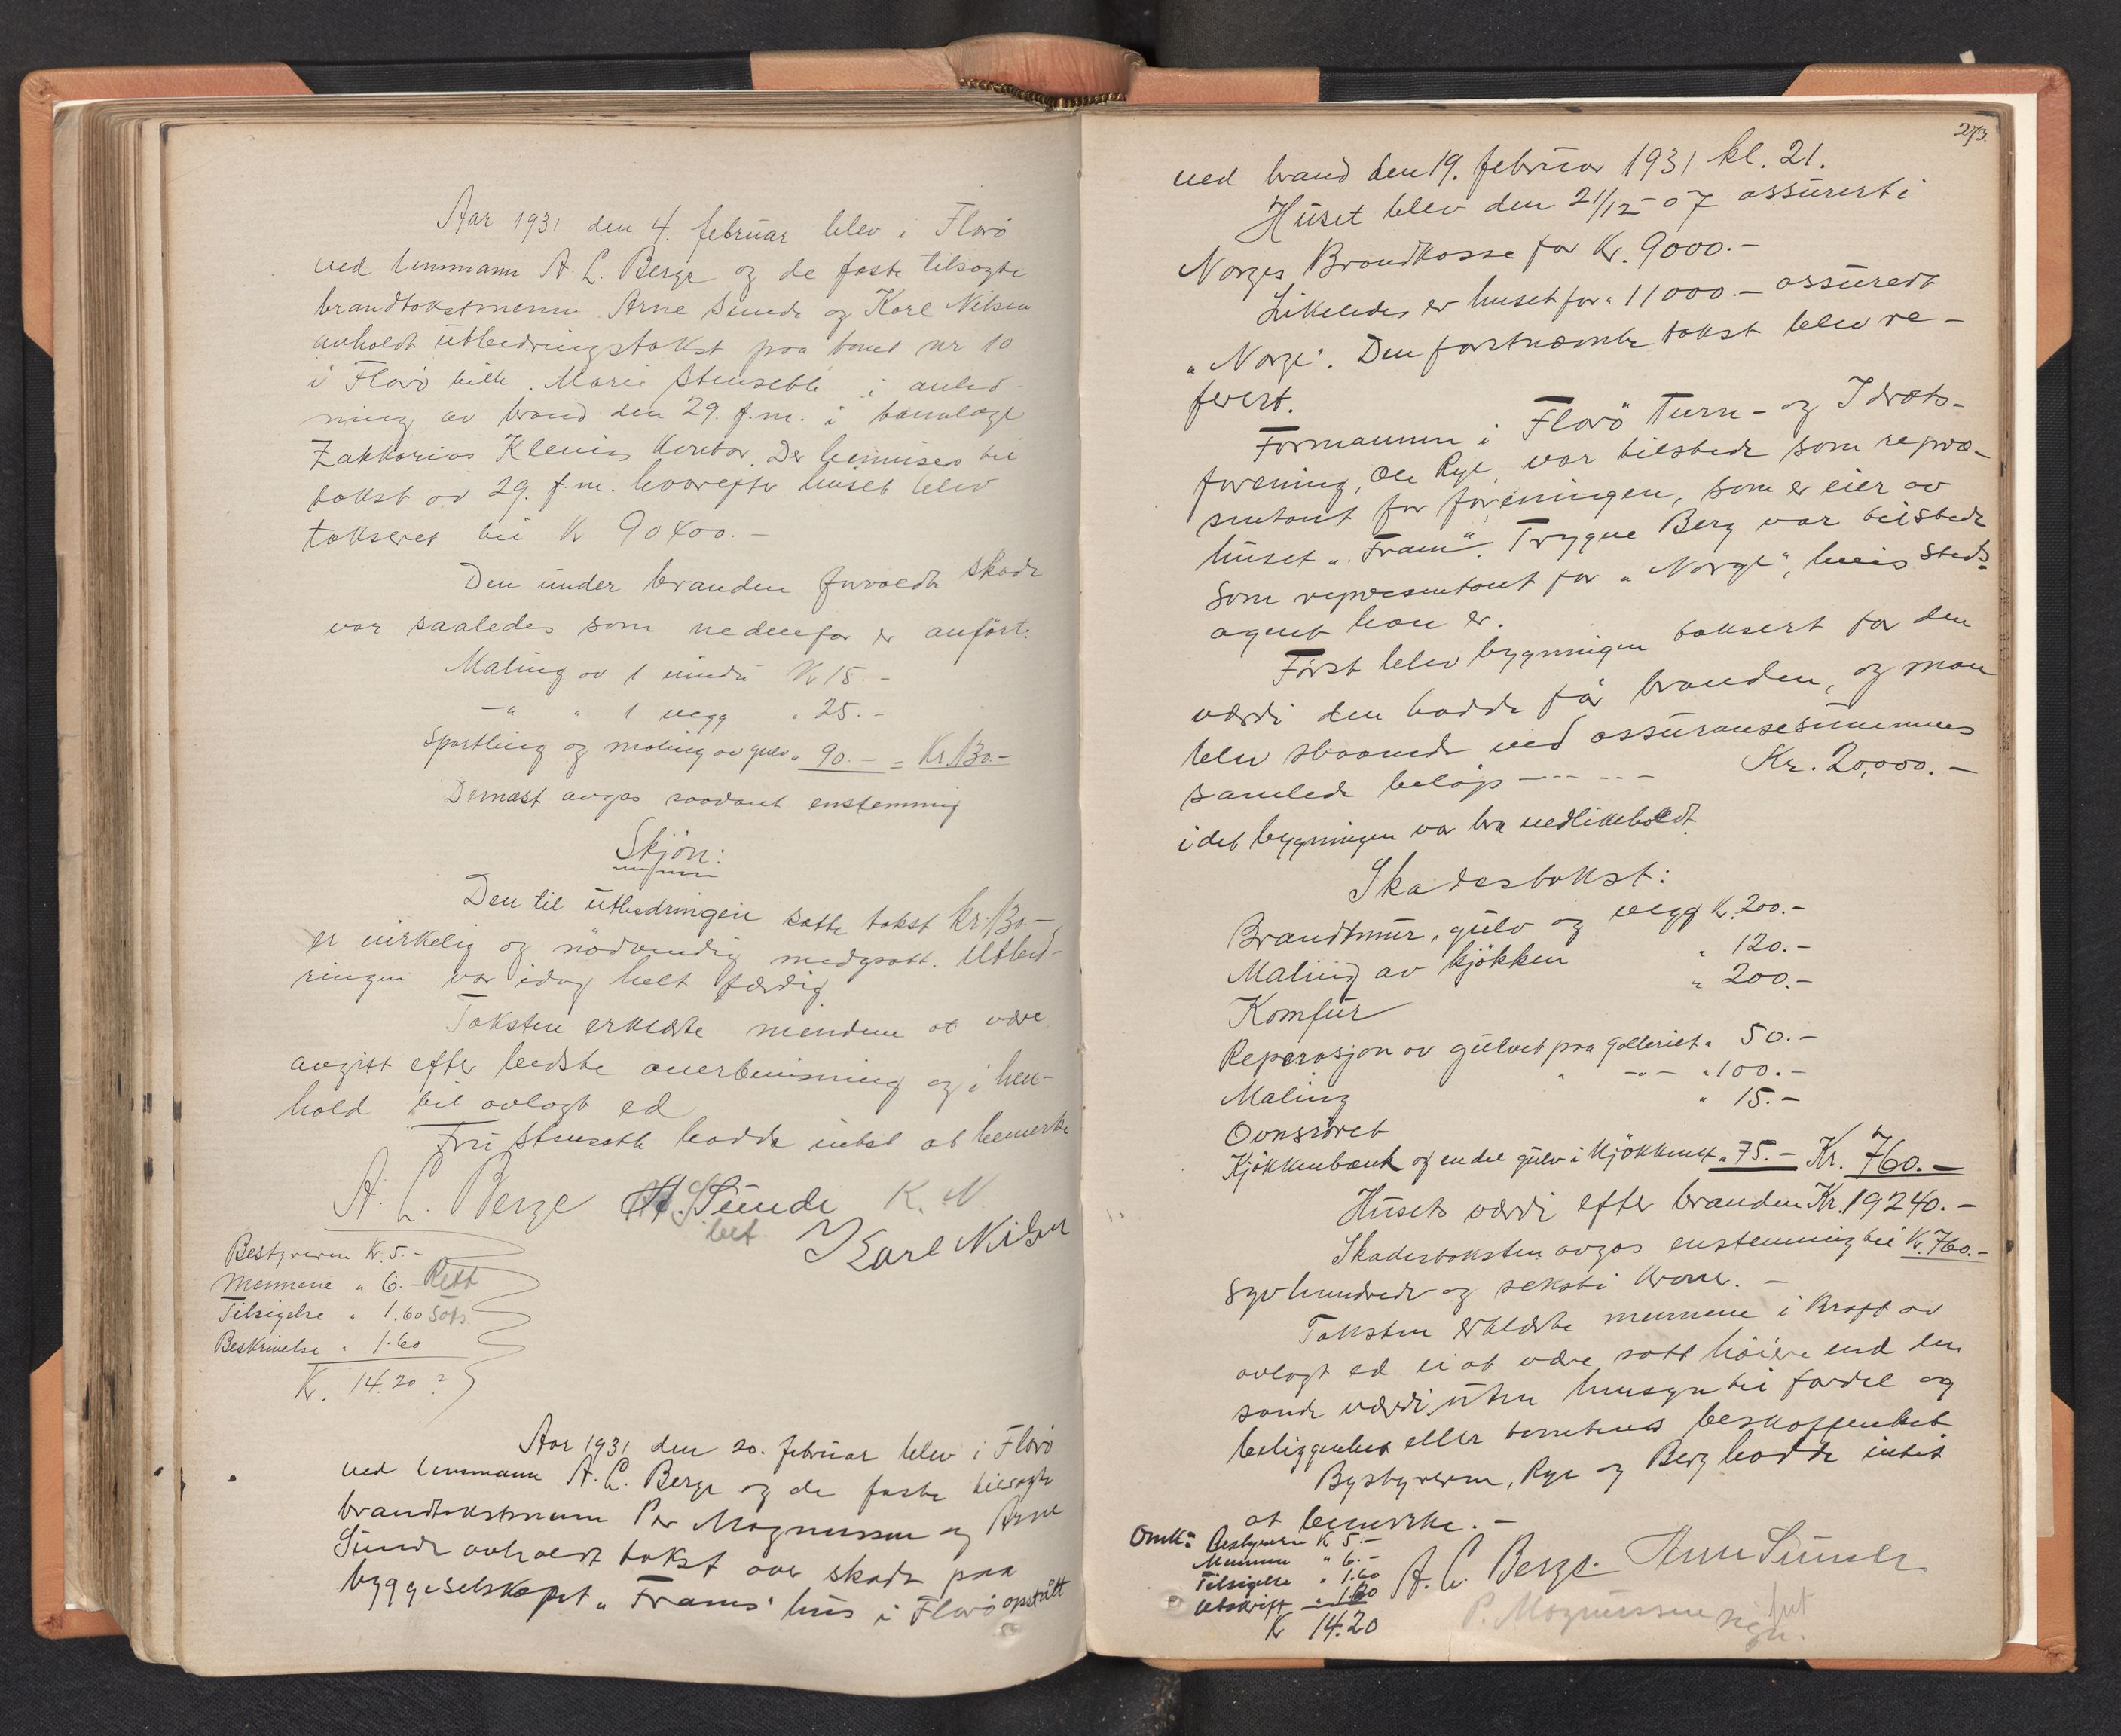 Aar 1931 den 4. februar blev i Florö
ved lensmann A. L. Berge og de faste tilsagte
brandtakstmenn Arne Sunde og Karl Nilsen
avholdt utbedringstakst paa tomt nr 10
i Florö tilh. Marie Stenseth i anled-
ning av brand den 29. f.m. i tannlæge
Zakkarias Klevis kontor. Der henvises til
takst av 29. f.m. hvorefter huset blev
taksert til Kr 90400.-
Den under branden forvoldte skade
var saaledes som nedenfor er anført:
Maling av 1 vindu Kr 15.-
-"- " 1 vegg " 25.-
Spartling og maling av gulv " 90.- = Kr. 130.-
Dernæst avgas saadant enstemmig
Skjön:
Den til utbedringen satte takst kr. 130.-
er virkelig og nödvendig medgaatt. Utbed-
ringen var idag helt færdig.
Taksten erklærte mendene at være
avgitt efter bedste overbevisning og i hen-
hold til avlagt ed
Fru Stenseth hadde intet at bemerke
A. L. Berge A. Sunde K. N.
bet. Karl Nilsen
Bestyreren Kr. 5.-
Mennene " 6.- Rett
Tilsigelse " 1.60
Beskrivelse " 1.60
Kr. 14.20
Aar 1931 den 20. februar blev i Florö
ved lensmann A. L. Berge og de faste tilsagte
brandtakstmenn Per Magnussen og Arne
Sunde avholdt takst over skade paa
byggeselskapet "Frams" hus i Florö opstått
273.
ved brand den 19. februar 1931 kl. 21.
Huset blev den 21/12-07 assurert i
Norges Brandkasse for Kr. 9000.-
Likeledes er huset for " 11000.- assuredt
"Norge". Den forstnævnte takst blev re-
ferert.
Formannen i Florö Turn- og Idræts-
forening, Ole Rye, var tilstede som repræ-
sentant for foreningen, som er eier av
huset "Fram". Trygve Berg var tilstede
som representant for "Norge", hvis steds-
agent han er.
Først blev bygningen taksert for den
værdi den hadde før branden, og man
blev staaende ved assuransesummens
samlede beløp - - - - - Kr. 20,000.-
idet bygningen var bra vedlikeholdt.
Skadestakst:
Brandmur, gulv og vegg Kr. 200.-
Maling av kjökken " 120.-
Komfur " 200.-
Reparasjon av gulvet paa galleriet " 50.-
Maling " -"- " 100.-
Ovnsröret " 15.-
Kjökkenbænk og endel gulv i kjökkenet " 75.- Kr. 760.-
Husets værdi efter branden Kr. 19240.-
Skadestaksten avgas enstemmig til Kr. 760.-
syvhundrede og seksti kroner.-
Taksten erklærte mennene i kraft av
avlagt ed ei at være satt høiere end den
sande værdi uten hensyn til fordel og
beliggenhet eller tomtens beskaffenhet
Bestyreren, Rye og Berg hadde intet
at bemerke.-
Omk: Bestyreren Kr 5.-
Mennene " 6.-
Tilsigelse " 1.60
Utskrift " 1.60
Kr 14.20
A. L. Berge. Arne Sunde
P. Magnussen sign.